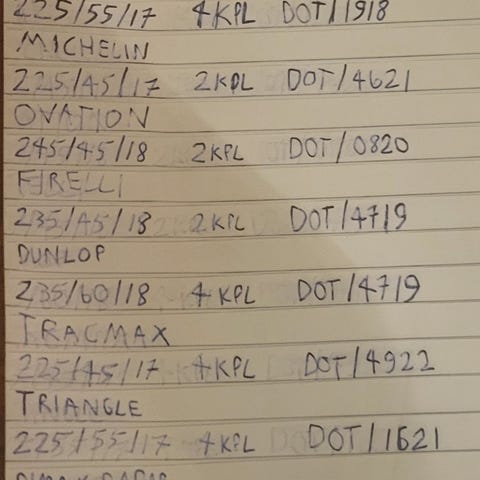 225/55/17 4KPL DOT/1918
MICHELIN
225/45/17 2KPL DOT/4621
OVATION
245/45/18 2KPL DOT/0820
PIRELLI
235/45/18 2KPL DOT/4719
DUNLOP
235/60/18 4KPL DOT/4719
TRACMAX
225/45/17 4KPL DOT/4922
TRIANGLE
225/55/17 4KPL DOT/1621